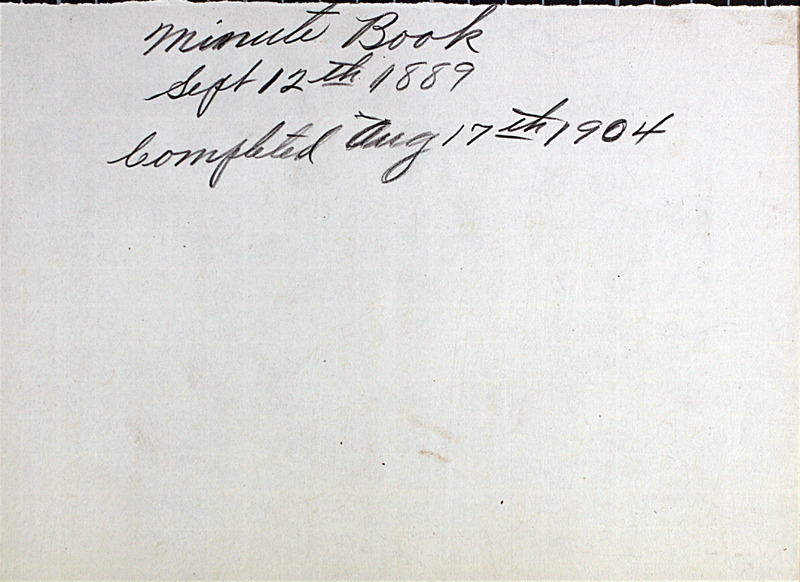 Minute Book
Sept 12th 1889
Completed Aug 17th 1904